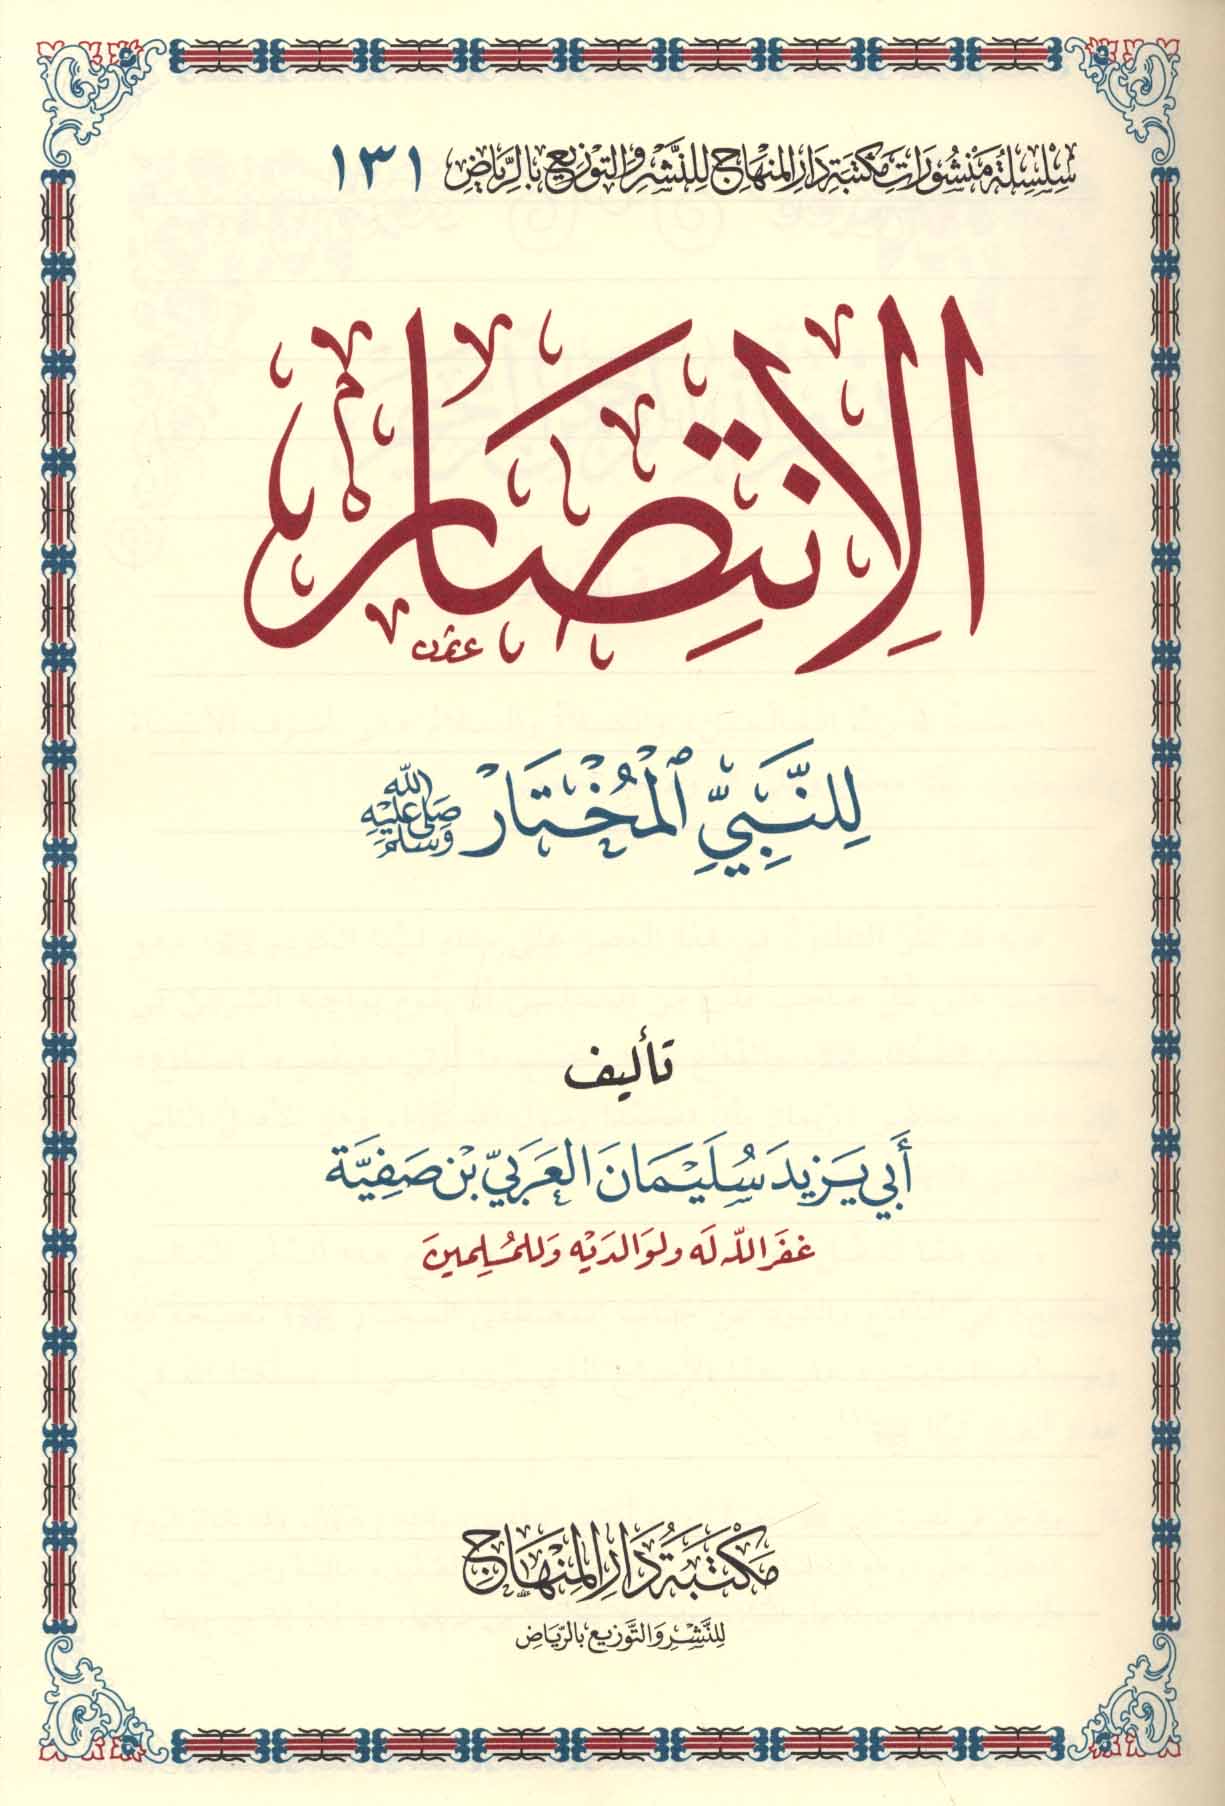 سلسلة منشورات مكتبة دار المنهاج للنشر والتوزيع بالرياض ١٣١
الانتصار
عثمان
للنبي المختار صلى الله عليه وسلم
تأليف
أبي يزيد سليمان العربي بن صفية
غفر الله له ولوالديه وللمسلمين
مكتبة دار المنهاج
للنشر والتوزيع بالرياض